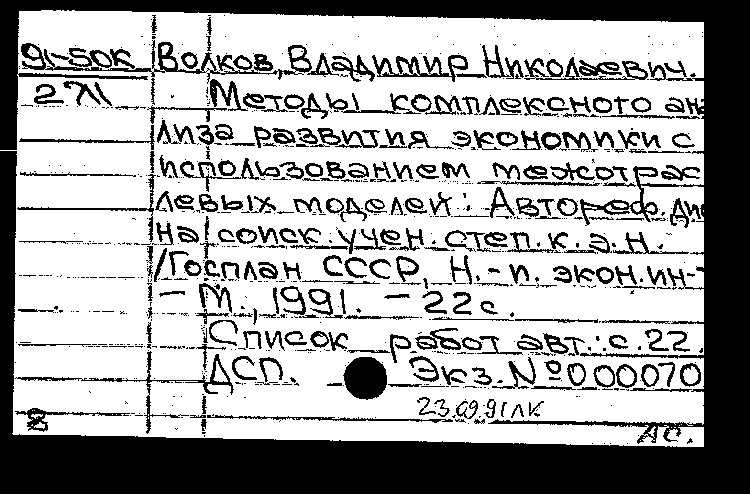 91-50К Волков, Владимир Николаевич.
27Л Методы комплексного ана
лиза развития экономики с
использованием межотрас
левых моделей: Автореф. дис
на соиск. учен. степ. к.э.н.
/Госплан СССР, Н.-и. экон. ин-т
- М., 1991. - 22с.
Список работ авт.: с.22.
ДСП. Экз. №000070
23.09.91 ЛК
8 АС.